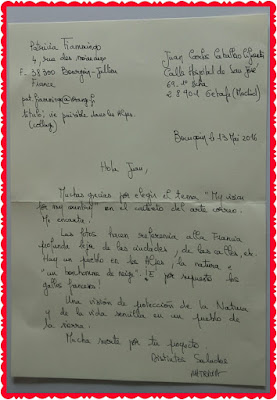 Patricia
4, rue des
F- 38300 Bourgoin-Jallieu
France
titulo: vie paisible dans les Alpes.
(collage)
Juan Carlos Caballero
Calle Hospital de San José
69. 1º
28901 Getafe (Madrid)
Bourgoin, le 17 Mai 2016
Hola Juan,
Muchas gracias por elegir el tema "My vision
for my country" en el contexto del arte correo.
Me encanta!
Las fotos hacen referencia alla Francia
profunda lejos de las ciudades y de las calles, etc.
Hay un pueblo en los Alpes, la natura y
"un bonhomme de neige". Y por supuesto los
gallos franceses!
Una visión de protección de la Natura
y de la vida sencilla en un pueblo de
la sierra.
Mucha suerte por tu proyecto.
Distintos Saludos